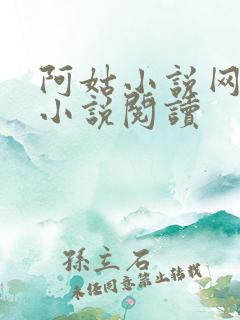 阿姑小说网
小说閱讀
孫立石
未经同意禁止转载